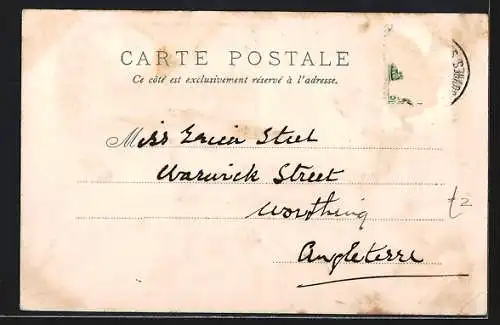 CARTE POSTALE
Ce côté est exclusivement réservé à l'adresse.
Miss Steel
Warwick Street
Worthing
Angleterre